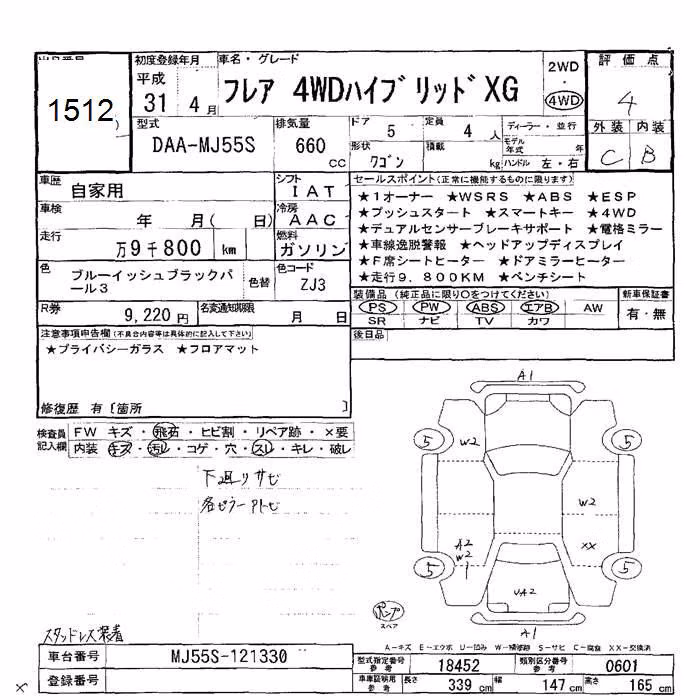 出品番号 初度登録年月 車名・グレード 2WD 評価点
1512 平成 31 年 4 月 フレア 4WDハイブリッドXG ・ 4WD 4
型式 排気量 ドア 5 定員 4 人 ディーラー・並行 外装 内装
DAA-MJ55S 660 cc 形状 ワゴン 積載 kg モデル年式 年 C B
ハンドル 左・右
車歴 自家用 シフト IAT セールスポイント(正常に機能するものに限ります)
車検 年 月( 日) 冷房 AAC ★1オーナー ★WSRS ★ABS ★ESP
★プッシュスタート ★スマートキー ★4WD
走行 万9千800 km 燃料 ガソリン ★デュアルセンサーブレーキサポート ★電格ミラー
★車線逸脱警報 ★ヘッドアップディスプレイ
色 ブルーイッシュブラックパール3 色替 色コード ZJ3 ★F席シートヒーター ★ドアミラーヒーター
★走行9.800KM ★ベンチシート
R券 9,220円 名変通知期限 月 日 装備品 (純正品に限り○をつけてください) 新車保証書
PS PW ABS エアB AW 有・無
SR ナビ TV カワ
注意事項申告欄(不具合内容等は具体的に記入して下さい) 後日品
★プライバシーガラス ★フロアマット
修復歴 有〔箇所 〕
検査員記入欄 FW キズ・飛石・ヒビ割・リペア跡・×要
内装 キズ・汚れ・コゲ・穴・スレ・キレ・破レ
下廻りサビ
各ピラーアトビ
A1
5 W2 5
W2
A2 W2 XX
5 5
UA2
パンプ
スペア
A1
スタッドレス装着
A-キズ E-エクボ U-凹み W-補修跡 S-サビ C-腐食 XX-交換済
車台番号 MJ55S-121330 型式指定番号 参考 18452 類別区分番号 参考 0601
登録番号 車庫証明用 参考 長さ 339 cm 幅 147 cm 高さ 165 cm
×